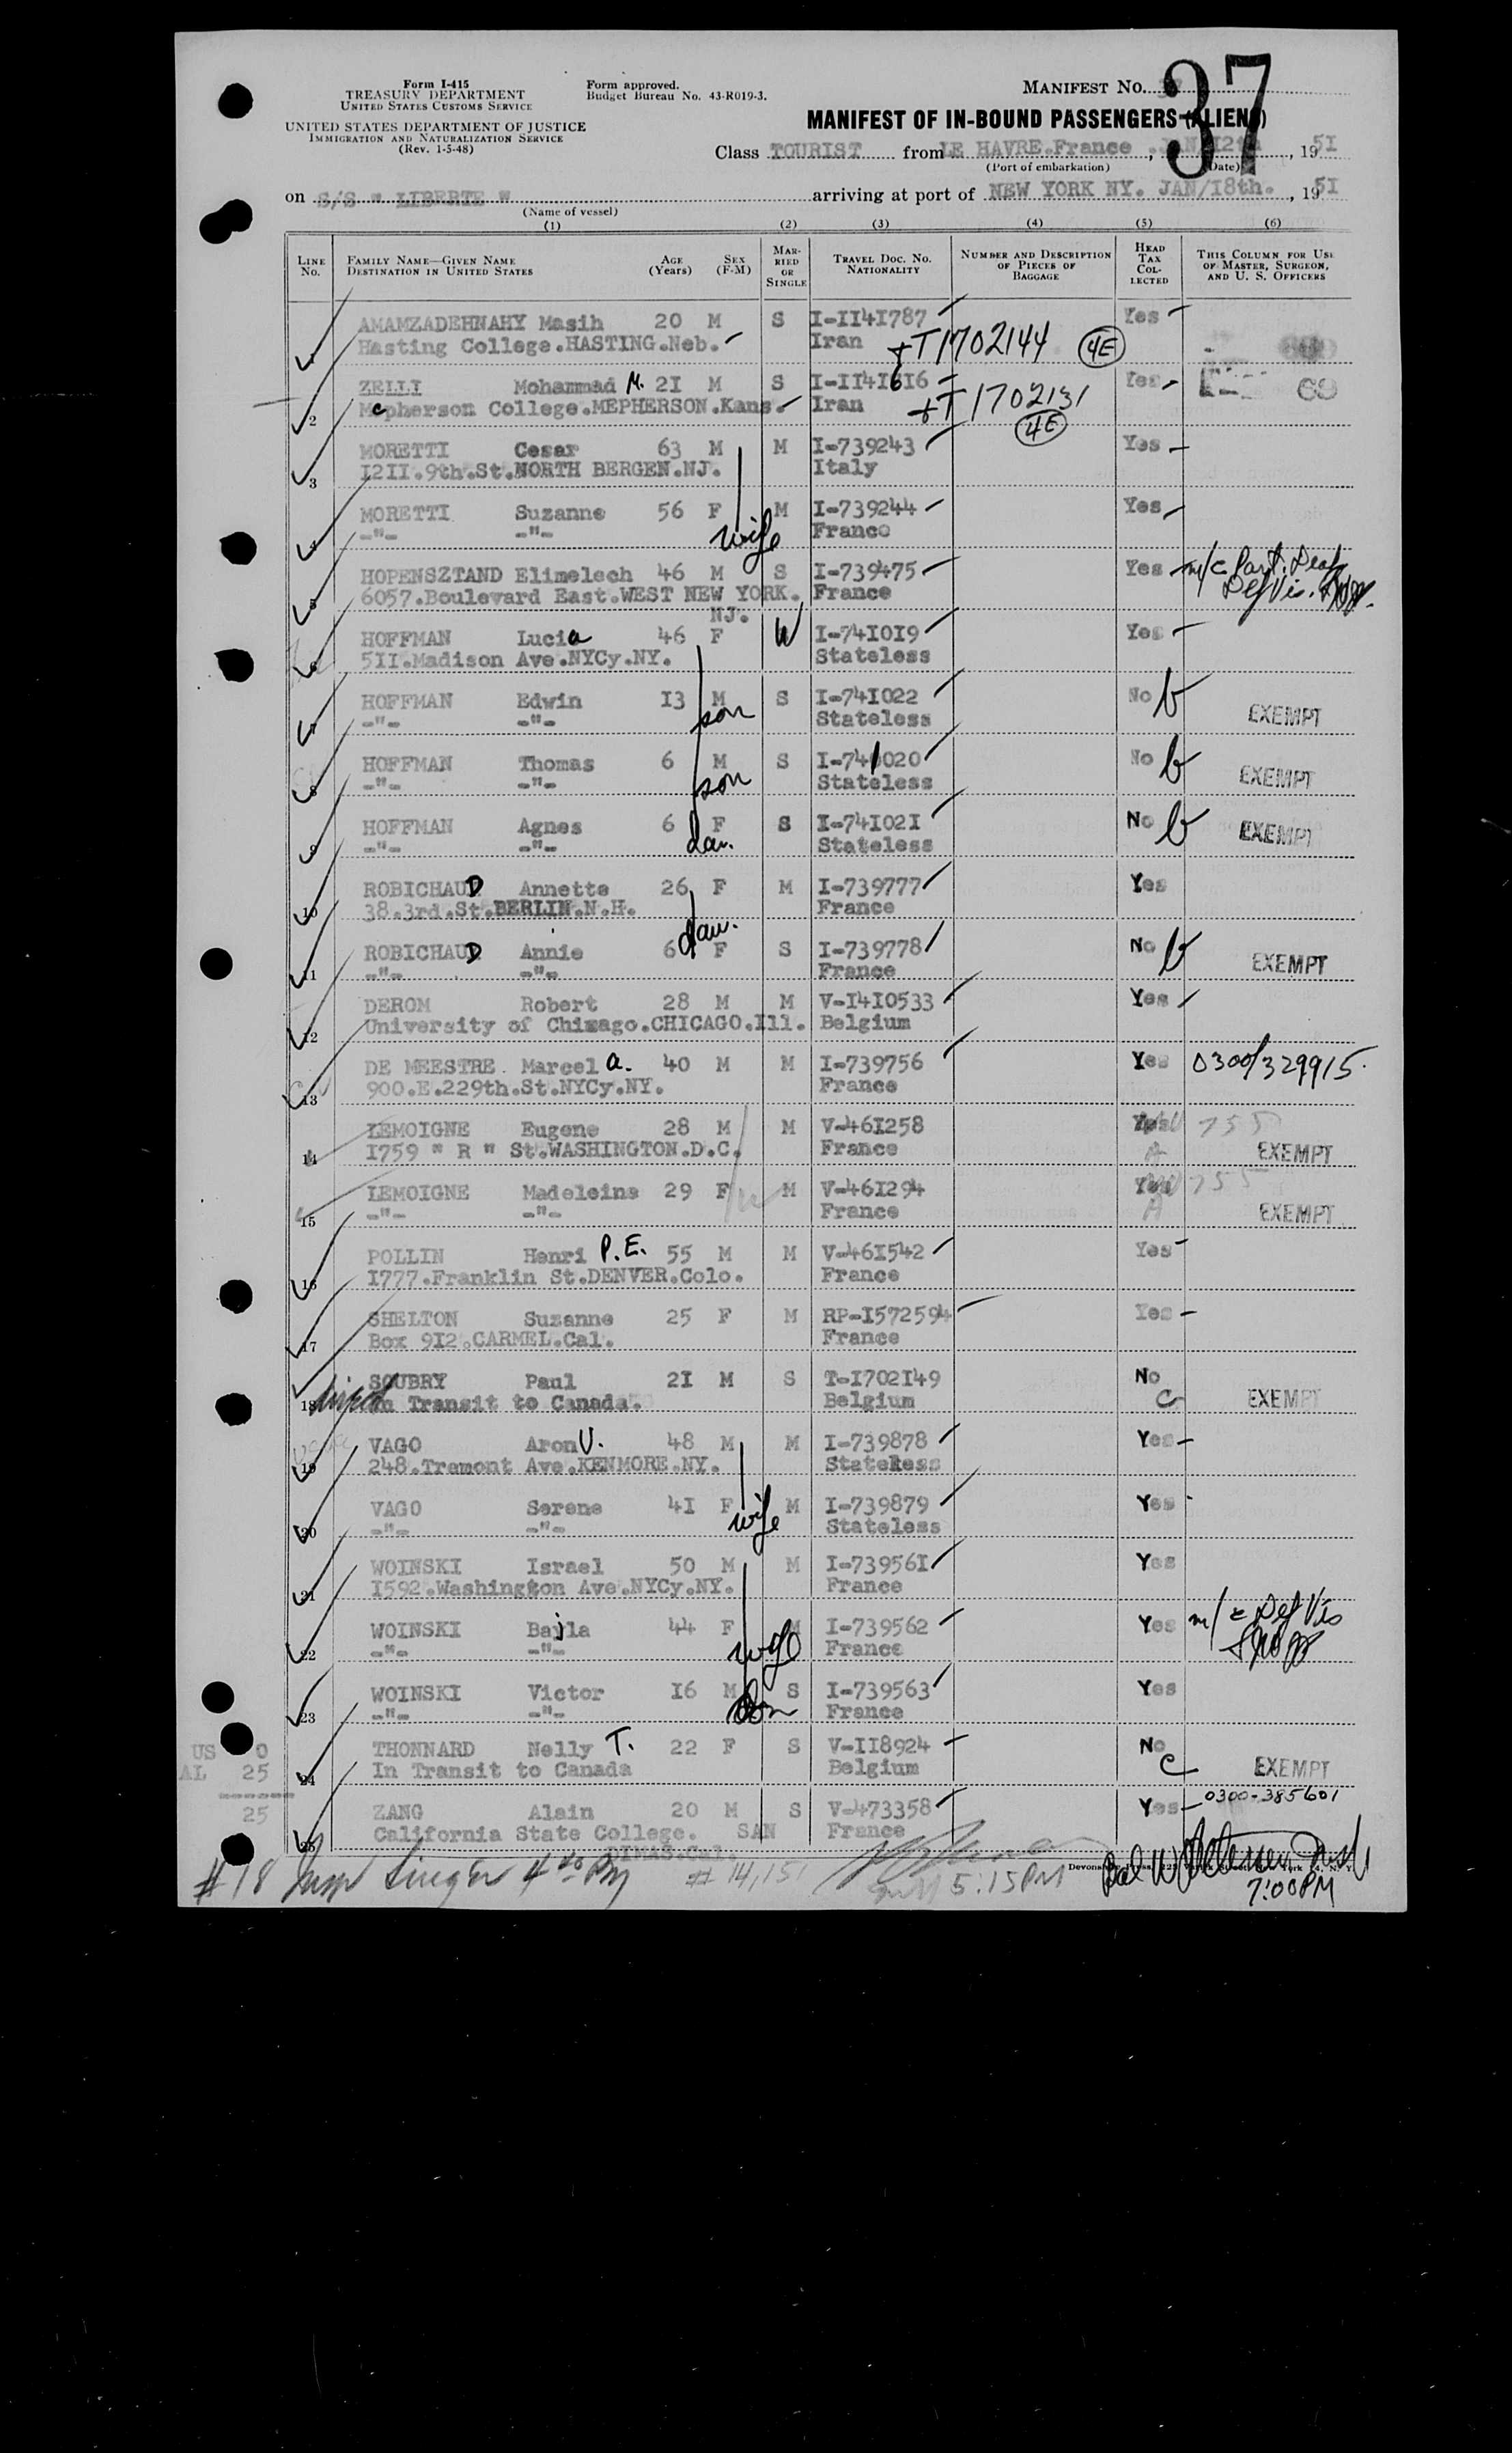 Form I-415
TREASURY DEPARTMENT
UNITED STATES CUSTOMS SERVICE
UNITED STATES DEPARTMENT OF JUSTICE
IMMIGRATION AND NATURALIZATION SERVICE
(Rev. 1-5-48)
Form approved.
Budget Bureau No. 43-R019-3.
MANIFEST No. 37
MANIFEST OF IN-BOUND PASSENGERS (ALIENS)
Class TOURIST from LE HAVRE.France , JAN/12th , 19 51
(Port of embarkation) (Date)
on S/S " LIBERTE " arriving at port of NEW YORK NY. JAN/18th. , 19 51
(Name of vessel)
(1) (2) (3) (4) (5) (6)
LINE No. FAMILY NAME—GIVEN NAME DESTINATION IN UNITED STATES AGE (Years) SEX (F-M) MARRIED OR SINGLE TRAVEL DOC. No. NATIONALITY NUMBER AND DESCRIPTION OF PIECES OF BAGGAGE HEAD TAX COLLECTED THIS COLUMN FOR USE OF MASTER, SURGEON, AND U. S. OFFICERS
AMAMZADEHNAHY Masih 20 M S I-II4I787 Yes
Hasting College.HASTING.Neb. Iran +T1702144 4E
2 ZELLI Mohammad M. 2I M S I-II4I616 Yes 69
Mcpherson College.MEPHERSON.Kans. Iran +T1702131 4E
3 MORETTI Cesar 63 M M I-739243 Yes
I2II.9th.St.NORTH BERGEN.NJ. Italy
4 MORETTI Suzanne 56 F wife M I-739244 Yes
-"- -"- France
5 HOPENSZTAND Elimelech 46 M S I-739475 Yes m/c Part. Deaf
6057.Boulevard East.WEST NEW YORK. France Def Vis.
NJ.
6 HOFFMAN Lucia 46 F W I-74I0I9 Yes
5II.Madison Ave.NYCy.NY. Stateless
7 HOFFMAN Edwin I3 M son S I-74I022 No b EXEMPT
-"- -"- Stateless
8 HOFFMAN Thomas 6 M son S I-741020 No b EXEMPT
-"- -"- Stateless
9 HOFFMAN Agnes 6 F dau. S I-74I02I No b EXEMPT
-"- -"- Stateless
10 ROBICHAUD Annette 26 F M I-739777 Yes
38.3rd.St.BERLIN.N.H. France
11 ROBICHAUD Annie 6 dau. F S I-739778 No b EXEMPT
-"- -"- France
12 DEROM Robert 28 M M V-I4I0533 Yes
University of Chizago.CHICAGO.Ill. Belgium
13 DE MEESTRE Marcel a. 40 M M I-739756 Yes 0300/329915.
900.E.229th.St.NYCy.NY. France
14 LEMOIGNE Eugene 28 M M V-46I258 755
I759 " R " St.WASHINGTON.D.C. France A EXEMPT
15 LEMOIGNE Madeleine 29 F w M V-46I294 755
-"- -"- France A EXEMPT
16 POLLIN Henri P.E. 55 M M V-46I542 Yes
I777.Franklin St.DENVER.Colo. France
17 SHELTON Suzanne 25 F M RP-I572594 Yes
Box 9I2.CARMEL.Cal. France
18 SOUBRY Paul 2I M S T-I702I49 No
In Transit to Canada. Belgium C EXEMPT
19 VAGO Aron V. 48 M M I-739878 Yes
248.Tremont Ave.KENMORE.NY. Stateless
20 VAGO Serene 4I F wife M I-739879 Yes
-"- -"- Stateless
21 WOINSKI Israel 50 M M I-73956I Yes
I592.Washington Ave.NYCy.NY. France
22 WOINSKI Bajla 44 F wife M I-739562 Yes m/c Def Vis
-"- -"- France
23 WOINSKI Victor I6 M son S I-739563 Yes
-"- -"- France
24 THONNARD Nelly T. 22 F S V-II8924 No
In Transit to Canada Belgium C EXEMPT
US 0
AL 25
------
25
25 ZANG Alain 20 M S V-473358 Yes 0300-385601
California State College. SAN France
DIMAS.Cal.
#18 Insp Singer 4 PM #14,151 5:15PM 7:00PM